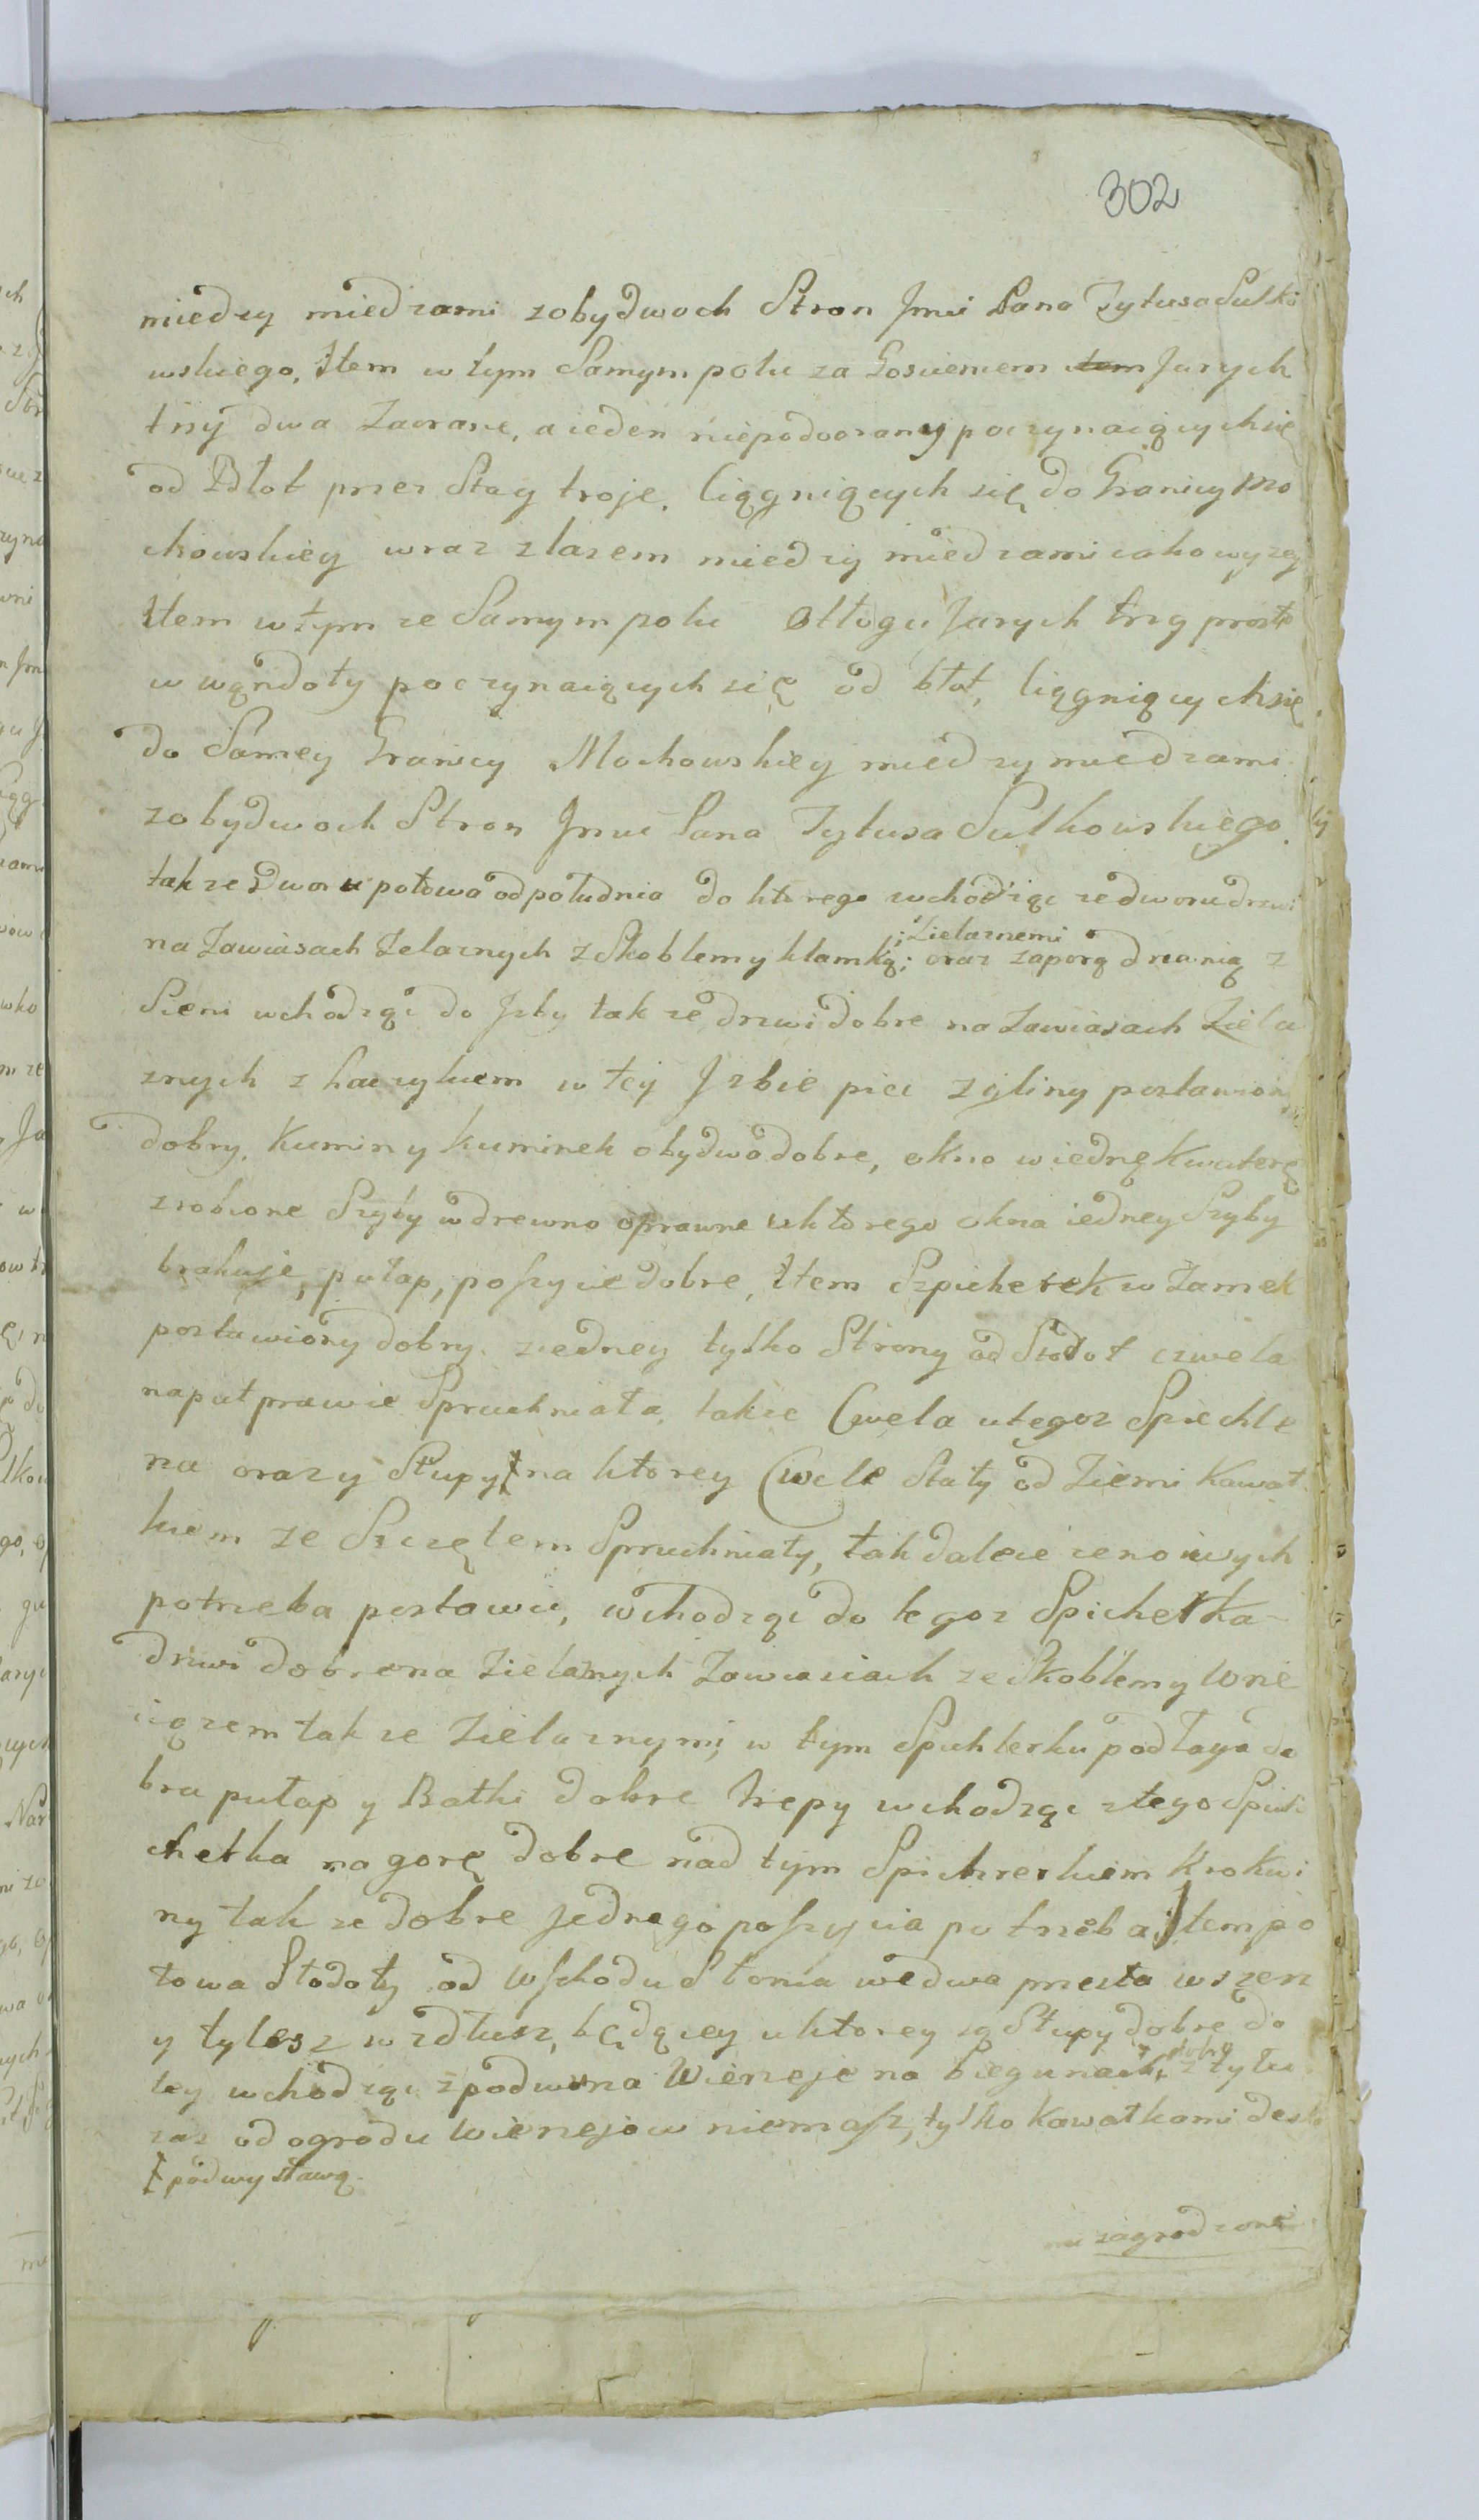 302
miedzy miedzami zobydwoch Stron Jmci Pana Tytusa Sulko
wskiego, Item w tym Samym polu za Gosciencem Jarych
trzy dwa Zaorane, a ieden niepodoorany poczynaiących się
od Błot przez Stay troje, Ciągniących się do Granicy Mo
chowskiey wraz zlazem miedzy miedzami iako wyzey
Item w tym ze Samym polu Odłogu Jarych trzy prosto
w wąndoły poczynaiących się od błot, Ciągniących się
do Samey Granicy Mochowskiey miedzy miedzami
zobydwoch Stron Jmci Pana Tytusa Sulkowskiego.
takze Dworu połowa od południa do ktorego wchodząc ze dworu drzwi
Zielaznemi
na Zawiasach Zelaznych z Skoblem y klamką; oraz zaporą drzanią z
Sieni wchodząc do Jzby takze drzwi dobre na Zawiasach Ziela
znych z haczykiem w tey Jzbie piec zgliny postawiony
dobry, Kumin y kuminek obydwa dobre, okno w iednę Kwaterę
zrobione Szyby w drewno oprawne u ktorego okna iedney Szyby
brakuje, pułap, poszycie dobre, Item Szpicherek w Zamek
postawiony dobry. ziedney tylko Strony od Stodoł czwela
naput prawie Spruchniała, takze Cwela u tegoz Spichle
rza oraz y Słupy na ktorey Cwele Stały od Ziemi Kawał
kiem ze Szczętem Spruchniały, tak dalece ze nowych
potrzeba postawic, wchodząc do tegoz Spicherka
drzwi dobre na Zielaznych Zawiasach ze Skoblem y Wrze
ciązem takze Zielaznymi, w tym Spichlerku podłoga do
bra pułap y Balki dobre trepy wchodząc ztego Spich
cherka na gorę dobre nad tym Spichrerkiem Krokwi
ny takze dobre Jednego poszycia potrzeba, Item po
łowa Stodoły od Wschodu Słonca we dwa prezta wszerz
y tylesz wzdłusz, będącey u ktorey są Słupy dobre do
dobre
tey wchodząc zpodworza Wierzeje na biegunach, z tyłu
zas od ogrodu Wierzejow niemasz, tylko Kawałkami deska
podwystawą.
mi zagrodzone